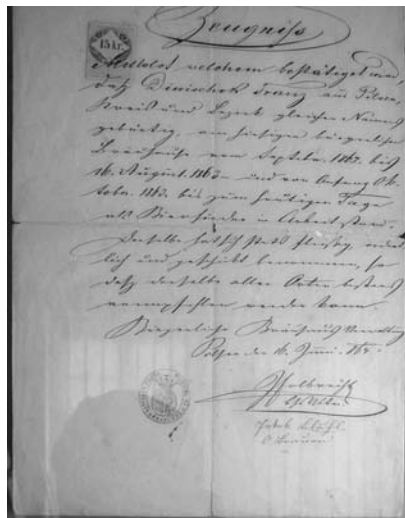 Zeugniß
15 kr.
Mittelst welchem bestätiget wird,
daß Franz aus Pilsen,
Kreis und Bezirk gleichen Namens
gebürtig, am hiesigen bürgerlichen
Bräuhause vom Septbr. 1862. bis
16. August 1863 und von Anfang Ok-
tober 1863. bis zum heutigen Tage
als in Arbeit stand.
Derselbe hat sich stets fleißig, ordent-
lich und geschickt benommen, so
daß derselbe aller Orten bestens
anempfohlen werden kann.
Bürgerliche Bräuhaus Verwaltung
Pilsen den 16. Juni
Jakob